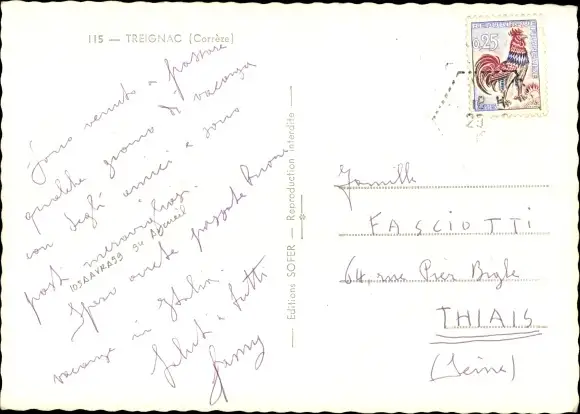 115 — TREIGNAC (Corrèze)
Sono venuto a passare
qualche giorno di vacanza
con degli amici e sono
posti meravigliosi.
103AAVRA39 94 Arcueil
Spero avete passato buone
vacanze in Italia.
Saluti a tutti
Editions SOFER — Reproduction interdite
0,25
Famille
FASCIOTTI
64, rue Pier Bigle
THIAIS
(Seine)